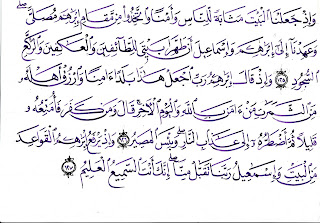 وَإِذْ جَعَلْنَا الْبَيْتَ مَثَابَةً لِلنَّاسِ وَأَمْنًا وَاتَّخِذُوا مِنْ مَقَامِ إِبْرَهِمَ مُصَلًّى
وَعَهِدْنَا إِلَى إِبْرَهِمَ وَإِسْمَاعِيلَ أَنْ طَهِّرَا بَيْتِيَ لِلطَّائِفِينَ وَالْعَاكِفِينَ وَالرُّكَّعِ
السُّجُودِ وَإِذْ قَالَ إِبْرَهِمُ رَبِّ اجْعَلْ هَذَا بَلَدًا ءَامِنًا وَارْزُقْ أَهْلَهُ
مِنَ الثَّمَرَتِ مَنْ ءَامَنَ بِاللَّهِ وَالْيَوْمِ الْآخِرِ قَالَ وَمَنْ كَفَرَ فَأُمَتِّعُهُ
قَلِيلًا ثُمَّ أَضْطَرُّهُ إِلَى عَذَابِ النَّارِ وَبِئْسَ الْمَصِيرُ ١٢٦ وَإِذْ يَرْفَعُ إِبْرَهِمُ الْقَوَاعِدَ
مِنَ الْبَيْتِ وَإِسْمَعِيلُ رَبَّنَا تَقَبَّلْ مِنَّا إِنَّكَ أَنْتَ السَّمِيعُ الْعَلِيمُ ١٢٧